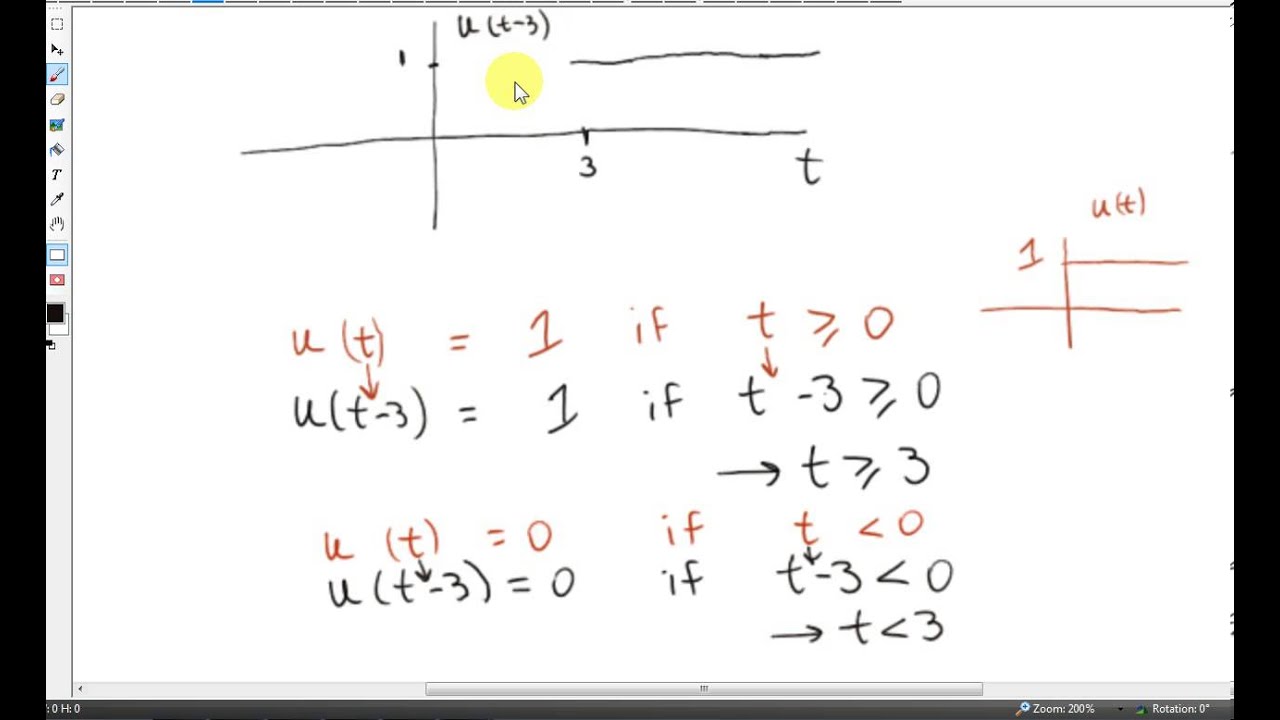 u(t-3)
1
3
t
u(t)
1
u(t) = 1 if t ≥ 0
u(t-3) = 1 if t-3 ≥ 0
→ t ≥ 3
u(t) = 0 if t < 0
u(t-3) = 0 if t-3 < 0
→ t < 3
T
: 0 H: 0 Zoom: 200% Rotation: 0°